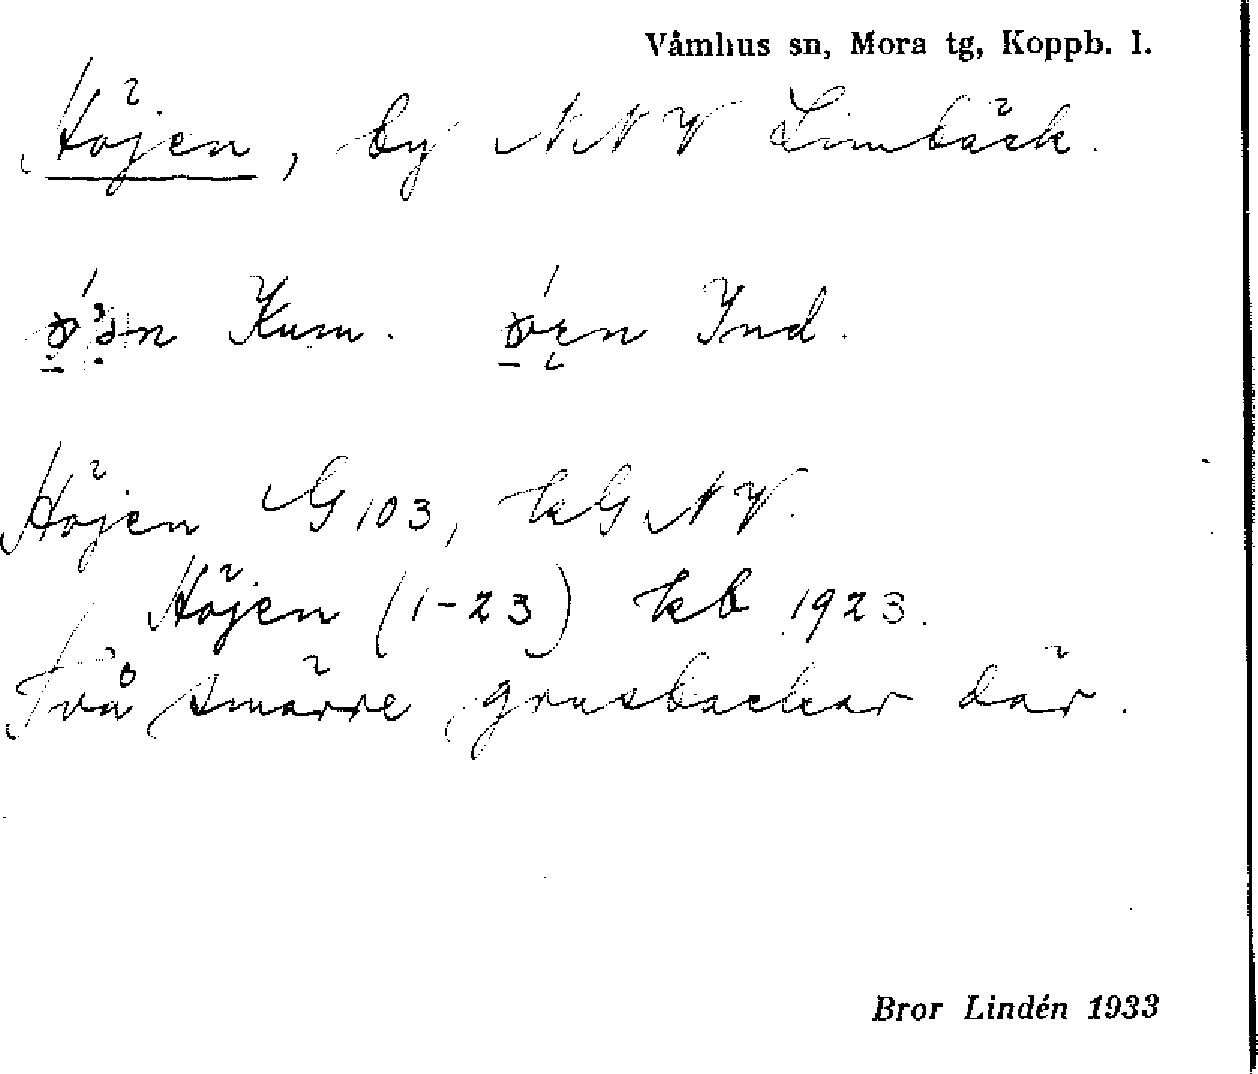 Våmhus sn, Mora tg, Koppb. l.
Höjen, by NNV Limbäck.
Kum. Ind.
Höjen G 103, kG NV.
Höjen (1-23) kb 1923.
Två smärre grusbackar där.
Bror Lindén 1933